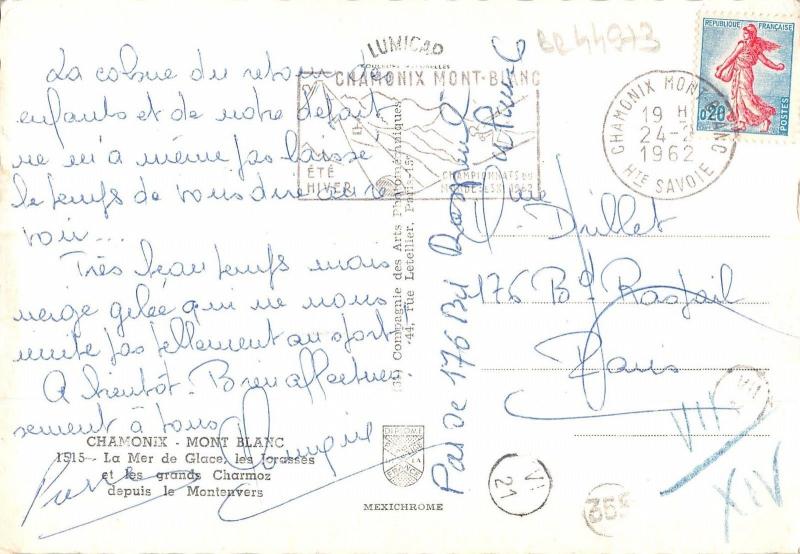 La cohue du retour des
enfants et de notre départ
ne m'a même pas laissé
le temps de vous dire au re
voir...
Très beau temps mais
neige gelée qui ne nous
invite pas tellement au sport
A bientôt - Bien affectueu-
sement à tous
CHAMONIX - MONT BLANC
1515 - La Mer de Glace, les Jorasses
et les grands Charmoz
depuis le Montenvers
LUMICAP
COULEURS NATURELLES
CHAMONIX MONT-BLANC
ÉTÉ
HIVER
CHAMPIONNATS DU
MONDE
1962
Compagnie des Arts Photomécaniques
44, rue Letellier, Paris-15e
DIPLOME
FRANCE
MEXICHROME
Pas de 176 Bis
BR 44973
CHAMONIX MONT-BLANC
19 H
24-
1962
HTE SAVOIE
REPUBLIQUE FRANÇAISE
0,20
POSTES
Mme
176 Bd Raspail
Paris
VI
21
355
VII
XIV